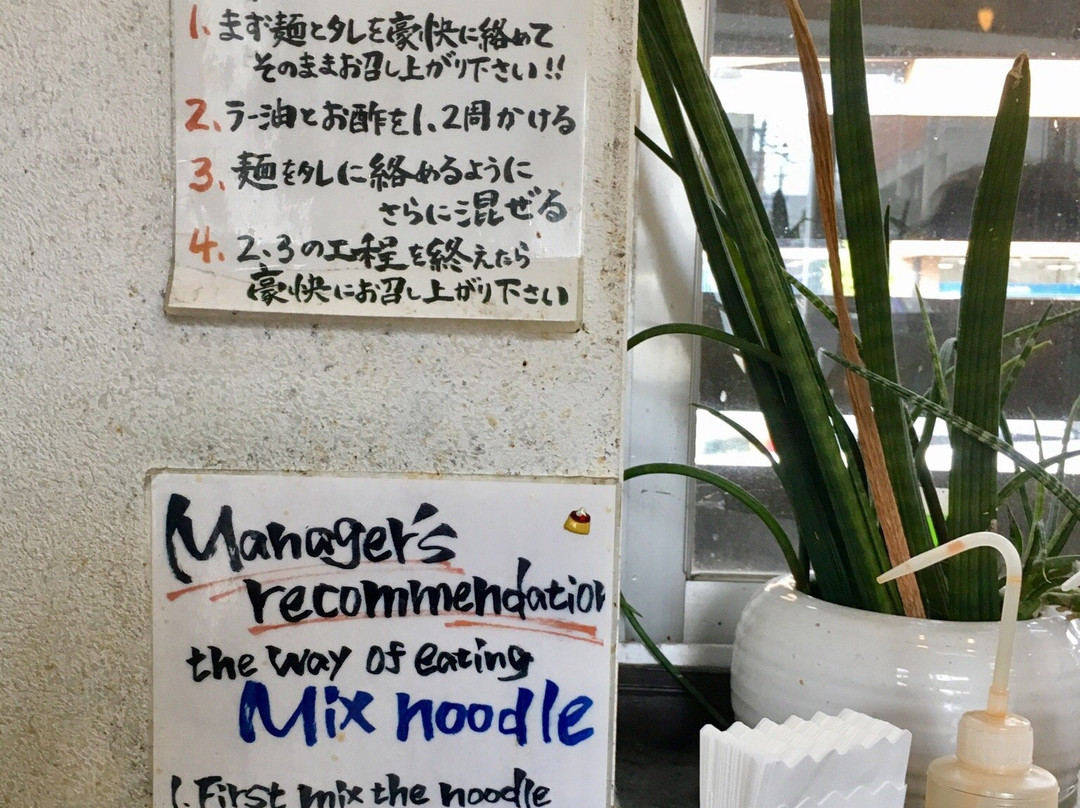 1. まず麺とタレを豪快に絡めて
そのままお召し上がり下さい!!
2. ラー油とお酢を1、2周かける
3. 麺をタレに絡めるように
さらに混ぜる
4. 2、3の工程を終えたら
豪快にお召し上がり下さい
Manager's
recommendation
the way of eating
Mix noodle
1. First mix the noodle